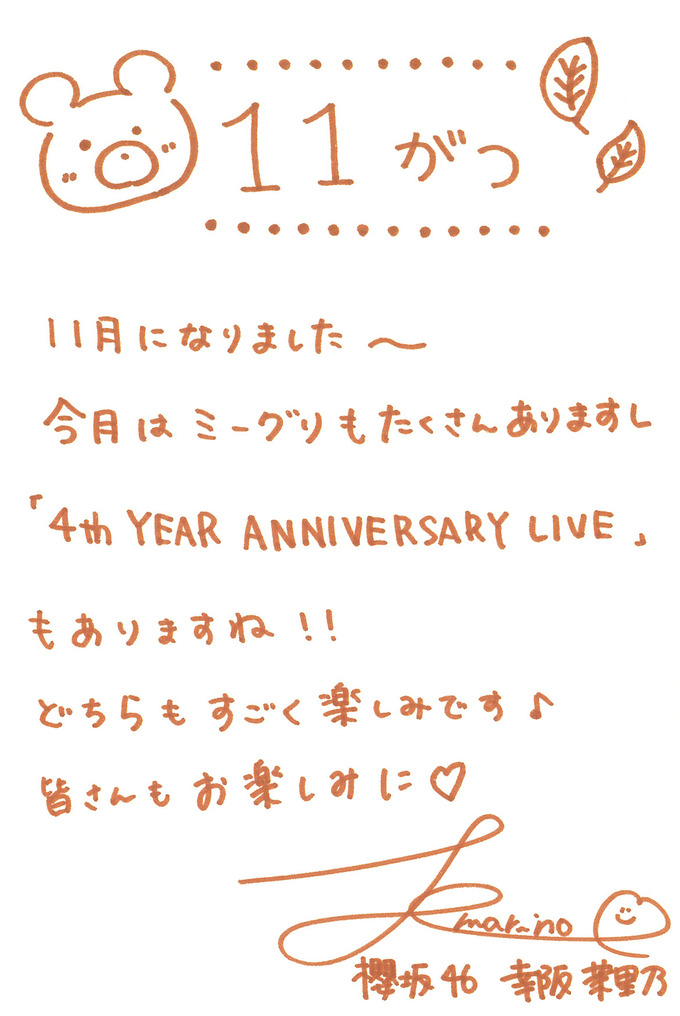 11がつ
11月になりました〜
今月はミーグリもたくさんありますし
「4th YEAR ANNIVERSARY LIVE」
もありますね!!
どちらもすごく楽しみです♪
皆さんもお楽しみに♡
marino
櫻坂46 幸阪茉里乃